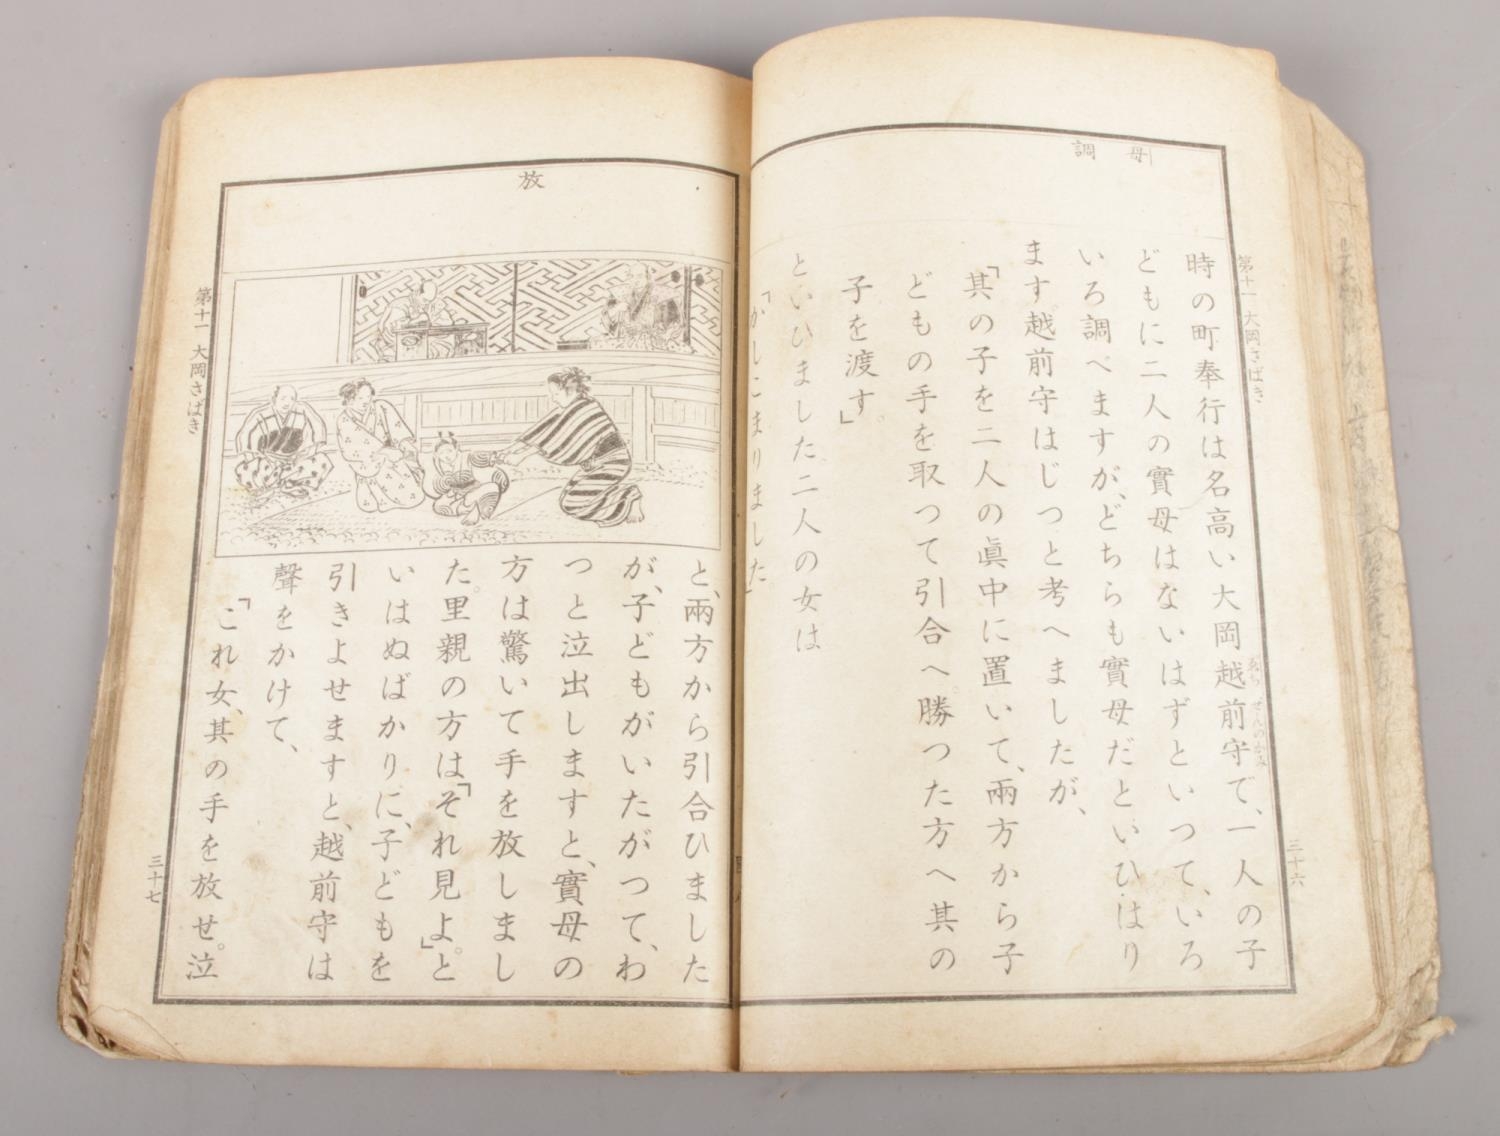 母
調
第十一 大岡さばき
三十六
時の町奉行は名高い大岡越前守で、一人の子
ゑちぜんのかみ
どもに二人の實母はないはずといつて、いろ
いろ調べますが、どちらも實母だといひはり
ます。越前守はじつと考へましたが、
「其の子を二人の眞中に置いて、兩方から子
どもの手を取つて引合へ。勝つた方へ其の
子を渡す。」
といひました。二人の女は
「かしこまりました。」
放
と、兩方から引合ひました
が、子どもがいたがつて、わ
つと泣出しますと、實母の
方は驚いて手を放しまし
た。里親の方は「それ見よ。」と
いはぬばかりに、子どもを
引きよせますと、越前守は
聲をかけて、
「これ女、其の手を放せ。泣
第十一 大岡さばき
三十七